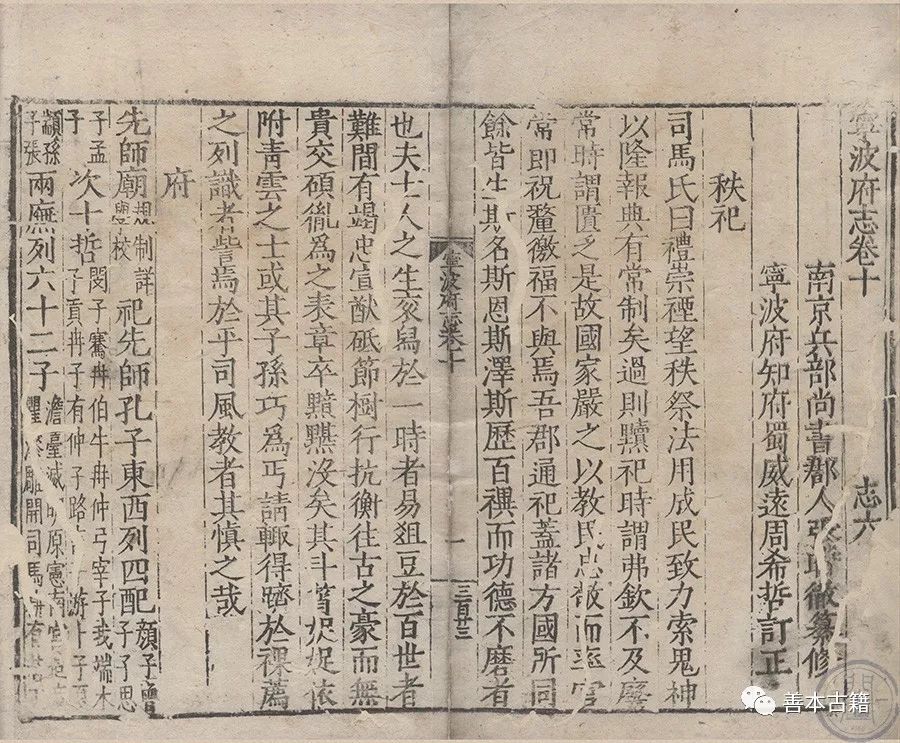 寧波府志卷十 志六
南京兵部尚書郡人張時徹纂修
寧波府知府蜀威遠周希哲訂正
秩祀
司馬氏曰禮崇禋望秩祭法用成民致力索鬼神
以隆報典有常制矣過則黷祀時謂弗欽不及廢
常時謂匱乏是故國家嚴之以教民忠敬而率官
常即祝釐徼福不與焉吾郡通祀蓋諸方國所同
餘皆生斯名斯恩斯澤斯歷百禩而功德不磨者
寧波府志卷十 一 三百廿三
也夫士人之生爰舄於一時者易俎豆於百世者
難間有竭忠宣猷砥節樹行抗衡往古之豪而無
貴交碩胤為之表章卒黮黮沒矣其斗筲捉捉依
附青雲之士或其子孫巧為丐請輒得躋於祼薦
之列識者訾焉於乎司風教者其慎之哉
府
先師廟規制詳學校祀先師孔子東西列四配顏子曾
子子思孟子次十哲閔子騫冉伯牛冉仲弓宰子我端木子貢冉子有仲子路 游卜子夏
顓孫子張兩廡列六十二子澹臺滅明原憲南宮适 瞿漆雕開司馬
善本古籍